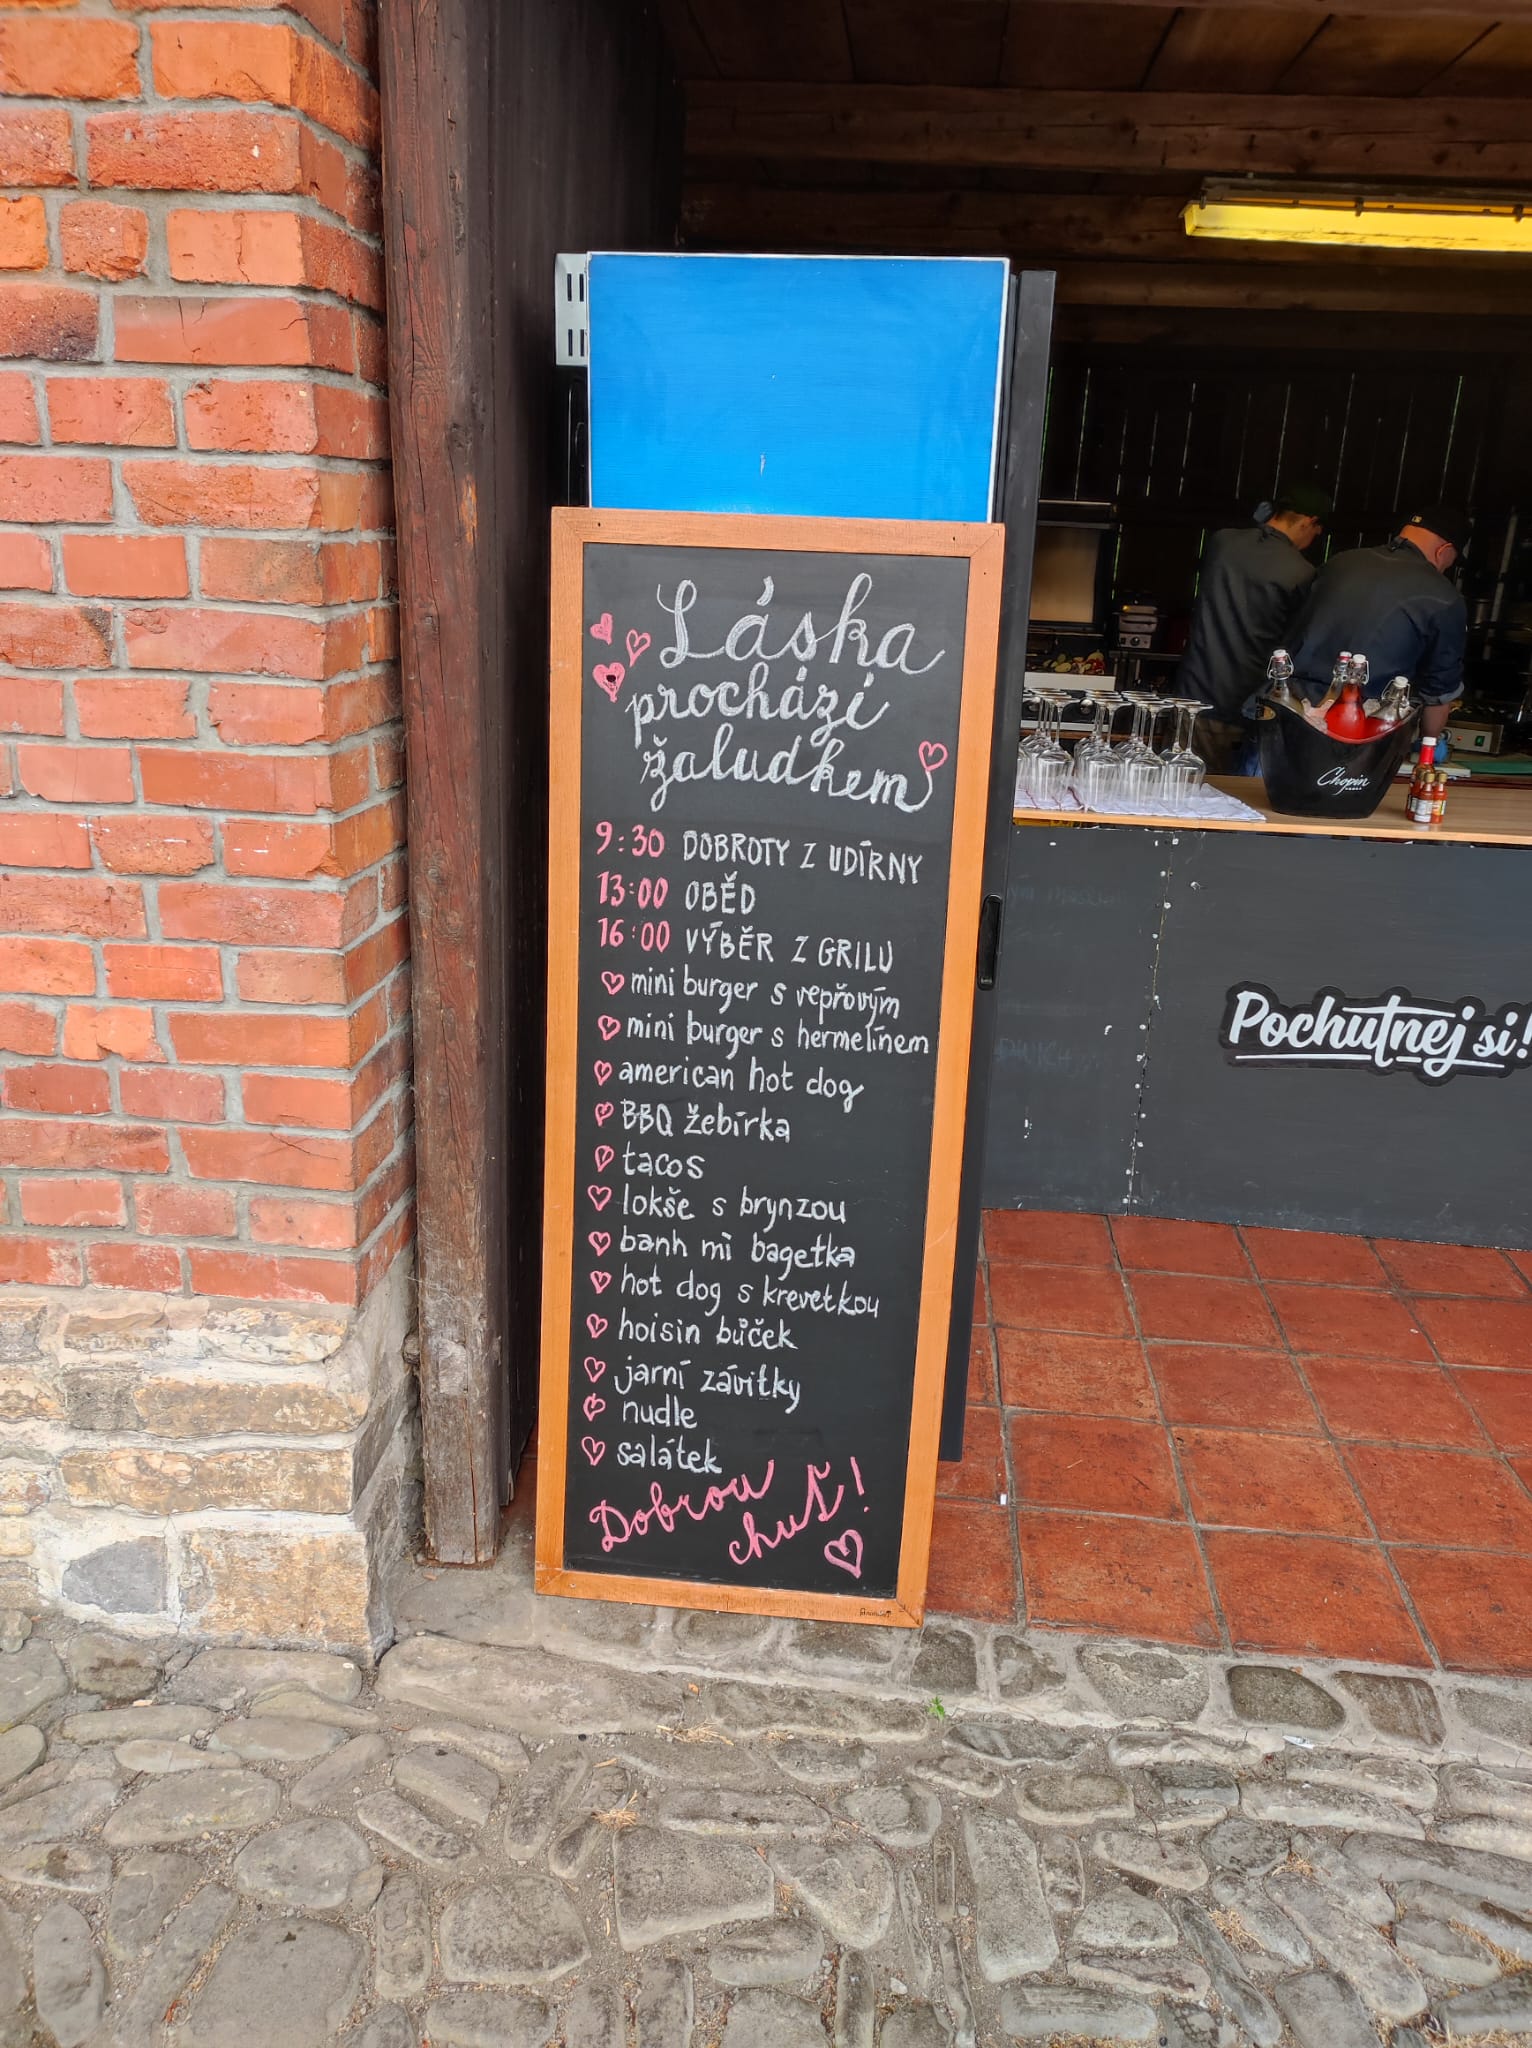 Láska
prochází
žaludkem
9:30 DOBROTY Z UDÍRNY
13:00 OBĚD
16:00 VÝBĚR Z GRILU
mini burger s vepřovým
mini burger s hermelínem
american hot dog
BBQ žebírka
tacos
lokše s brynzou
banh mi bagetka
hot dog s krevetkou
hoisin bůček
jarní závitky
nudle
salátek
Dobrou
chuť!
Chopin
Pochutnej si!